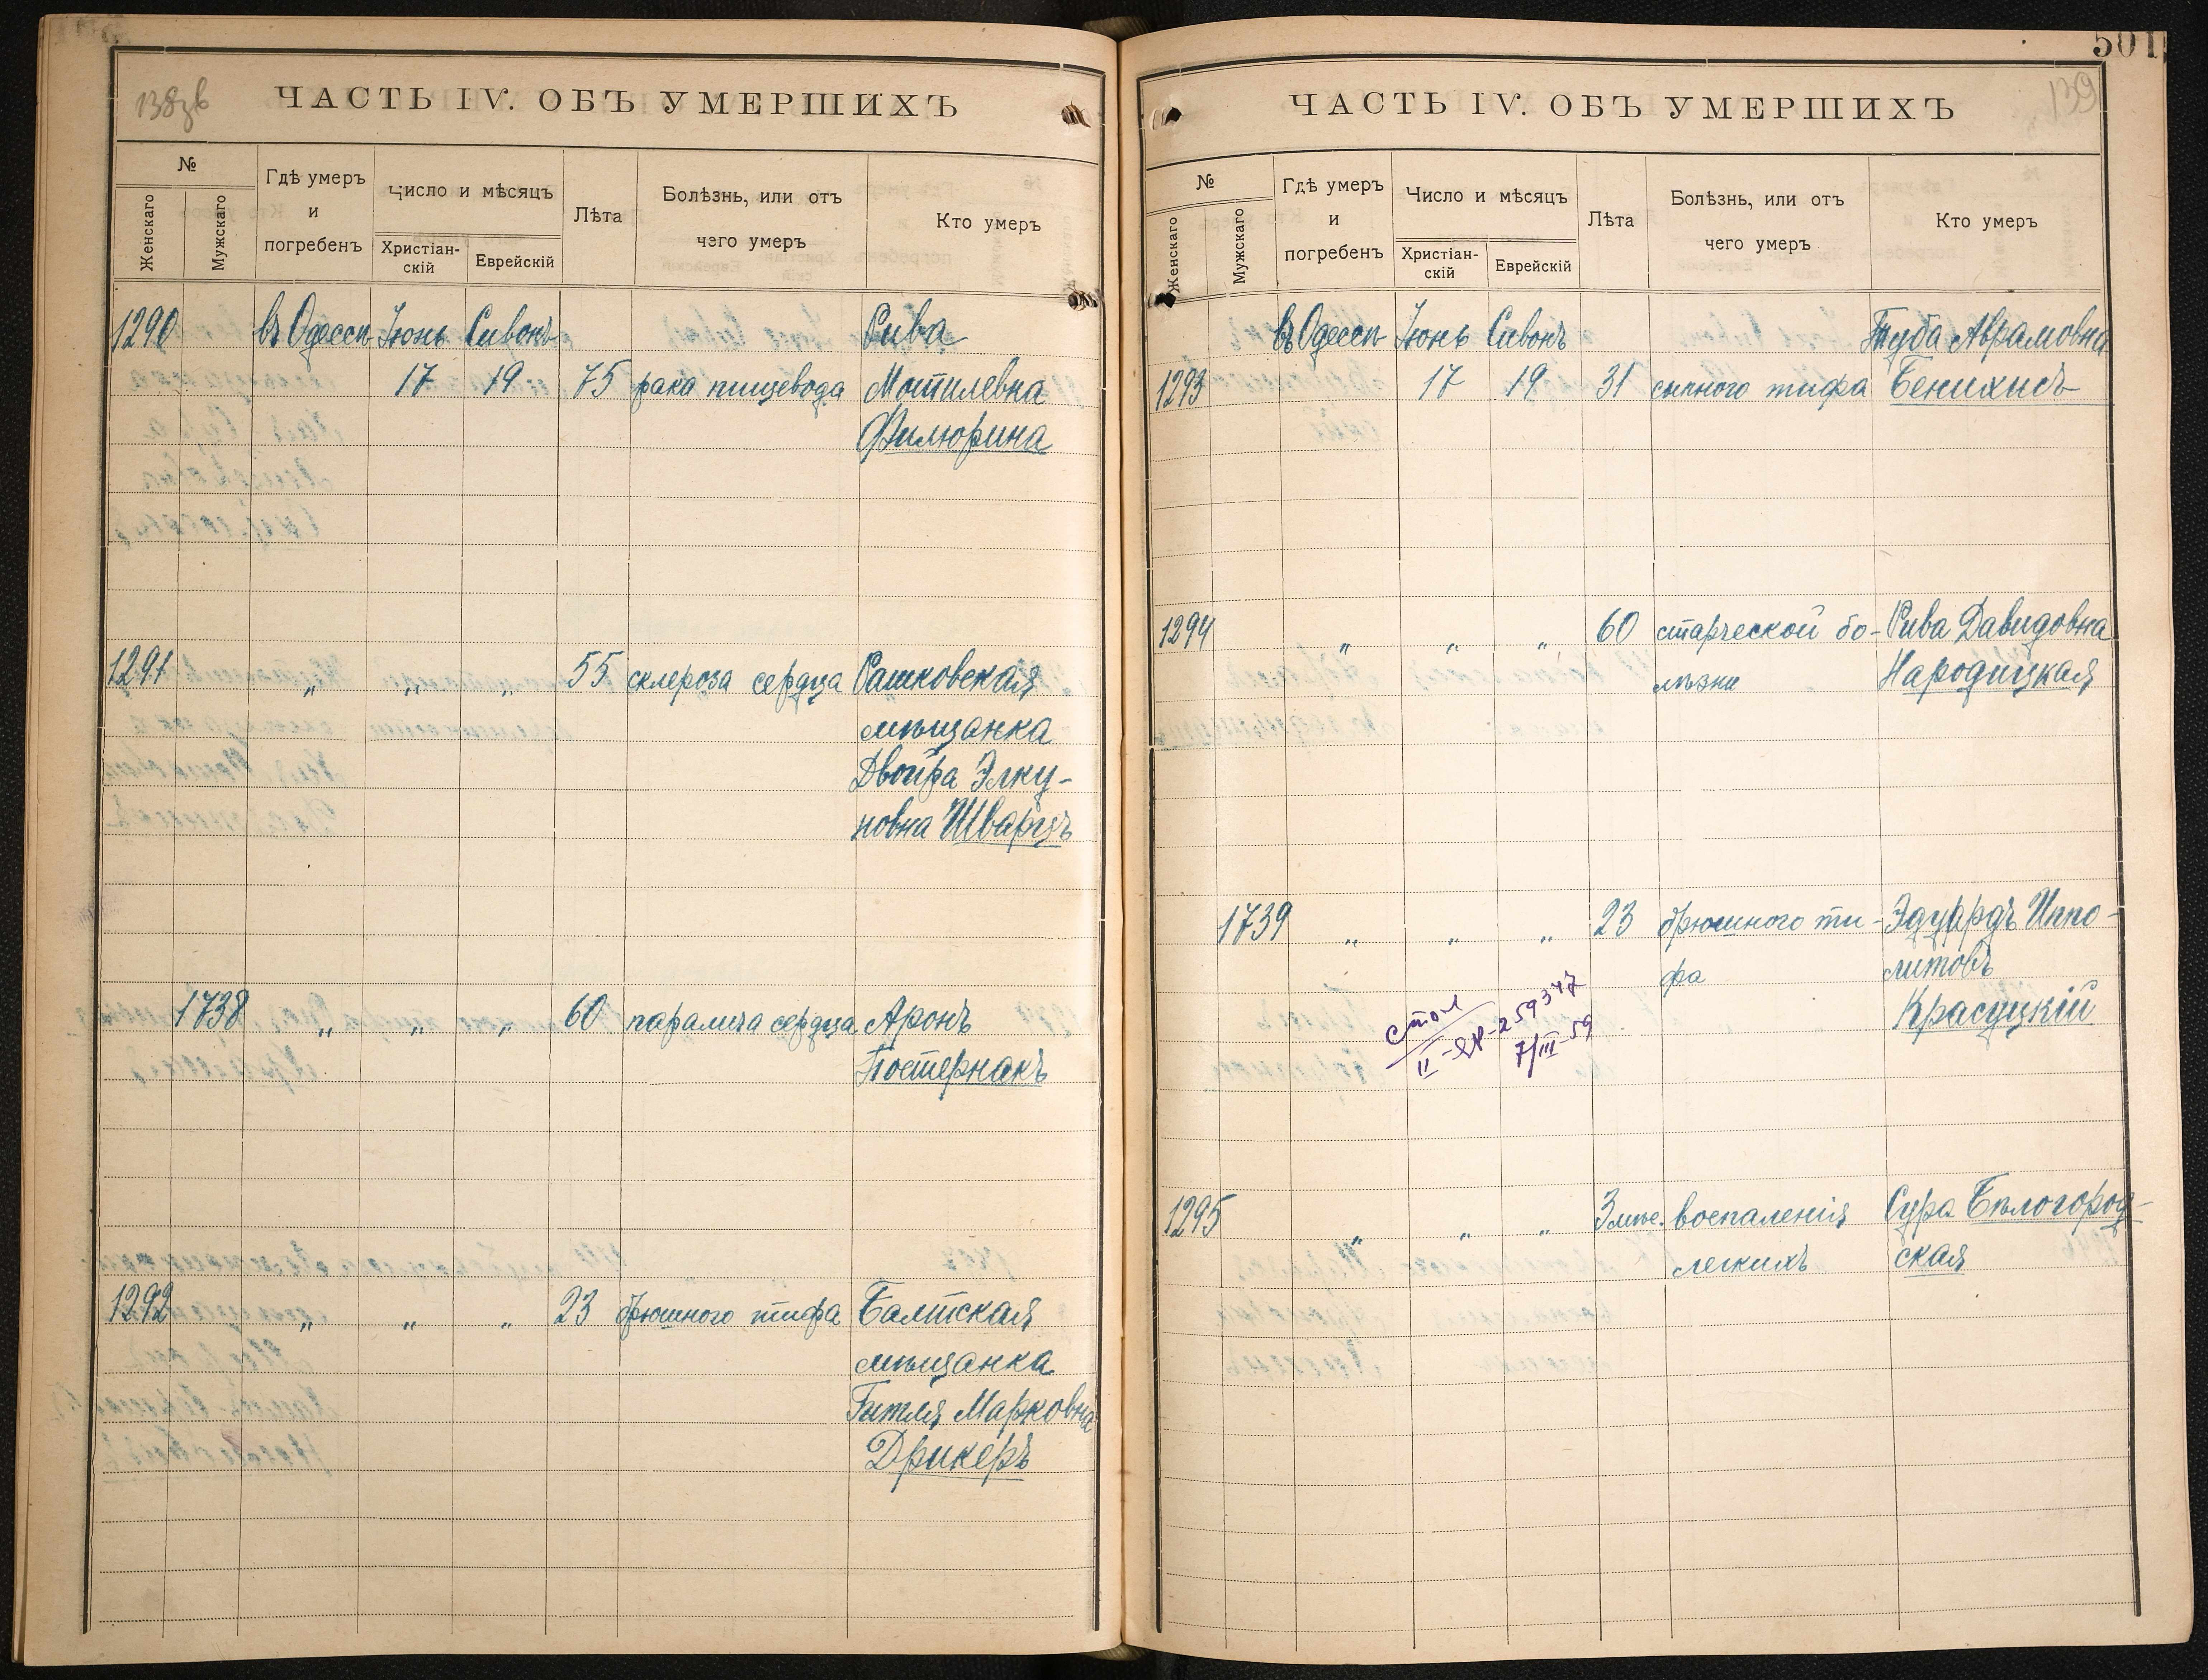 138зв
ЧАСТЬ IV. ОБЪ УМЕРШИХЪ
№
Женскаго
Мужскаго
Гдѣ умеръ
и
погребенъ
Число и мѣсяцъ
Христіан-
скій
Еврейскій
Лѣта
Болѣзнь, или отъ
чего умеръ
Кто умеръ
1290 въ Одессѣ Іюнь Сивонъ Рива
17 19 75 рака пищевода Мотилевна
Филюрина
1291 „ „ „ 55 склероза сердца Рашковская
мѣщанка
Двойра Элку-
новна Шварцъ
1738 „ „ „ 60 паралича сердца Аронъ
Постернакъ
1292 „ „ „ 23 брюшного тифа Балтская
мѣщанка
Гитля Марковна
Дрикеръ
501
139
ЧАСТЬ IV. ОБЪ УМЕРШИХЪ
№
Женскаго
Мужскаго
Гдѣ умеръ
и
погребенъ
Число и мѣсяцъ
Христіан-
скій
Еврейскій
Лѣта
Болѣзнь, или отъ
чего умеръ
Кто умеръ
въ Одессѣ Іюнь Сивонъ Туба Абрамовна
1293 17 19 31 сыпного тифа Бенихисъ
1294 „ „ „ 60 старческой бо- Рива Давидовна
лѣзни Народицкая
1739 „ „ „ 23 брюшного ти- Эдуардъ Иппо-
фа литовъ
Красуцкій
стол
7/III-59
1295 „ „ „ 3 мѣс. воспаленія Сура Бѣлогород-
легкихъ ская